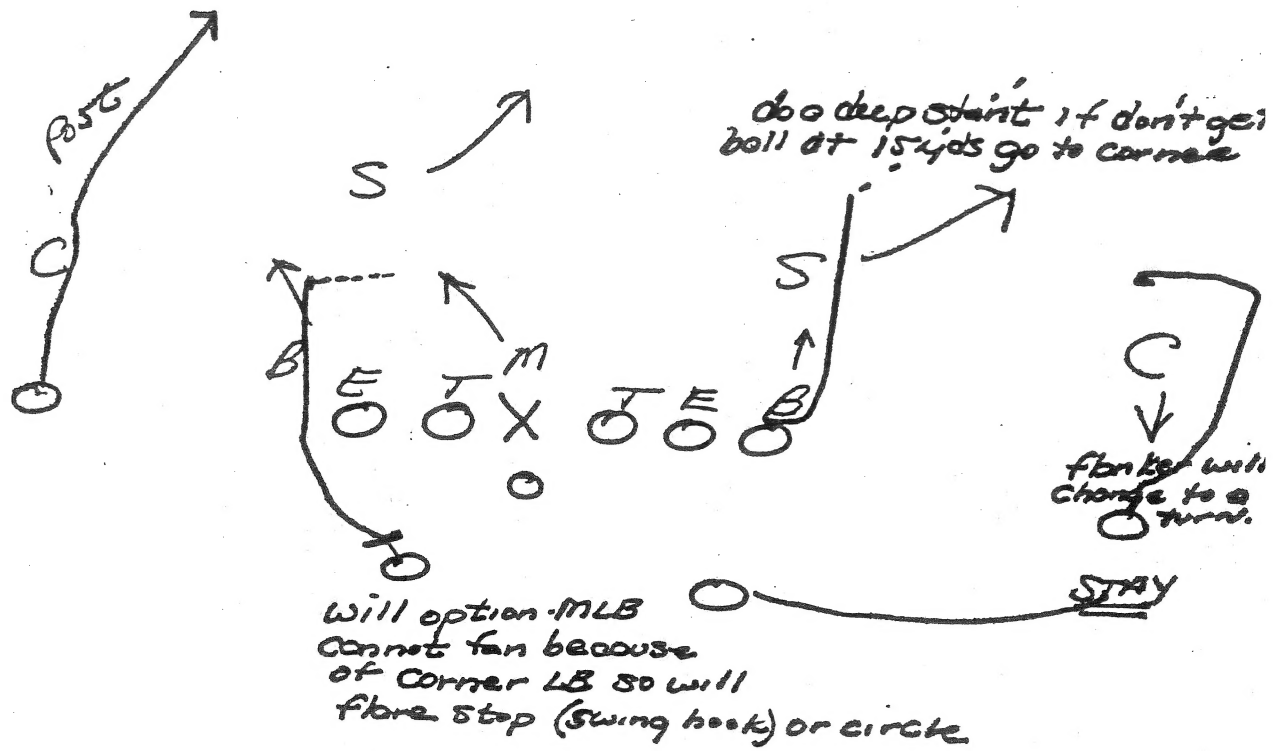 post
do a deep slant if don't get
ball at 15 yds go to corner
S
S
C
C
B
M
E
T
X
T
E
B
flanker will
change to a
turn.
STAY
will option-MLB
cannot fan because
of corner LB so will
flare stop (swing hook) or circle